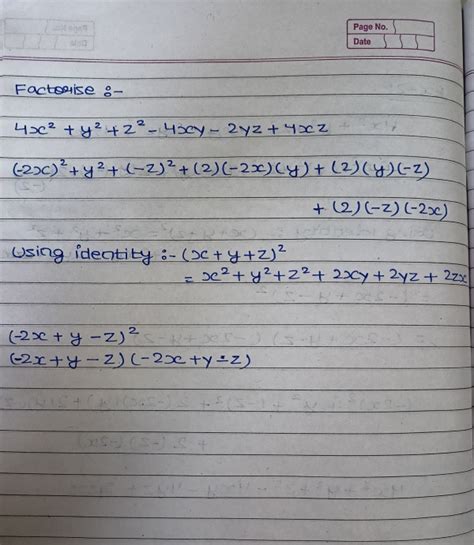 Page No.
Date
Factorise :-
4x² + y² + z² - 4xy - 2yz + 4xz
(-2x)² + y² + (-z)² + (2)(-2x)(y) + (2)(y)(-z)
+ (2)(-z)(-2x)
Using identity :- (x+y+z)²
= x² + y² + z² + 2xy + 2yz + 2zx
(-2x + y - z)²
(-2x + y - z) (-2x + y - z)